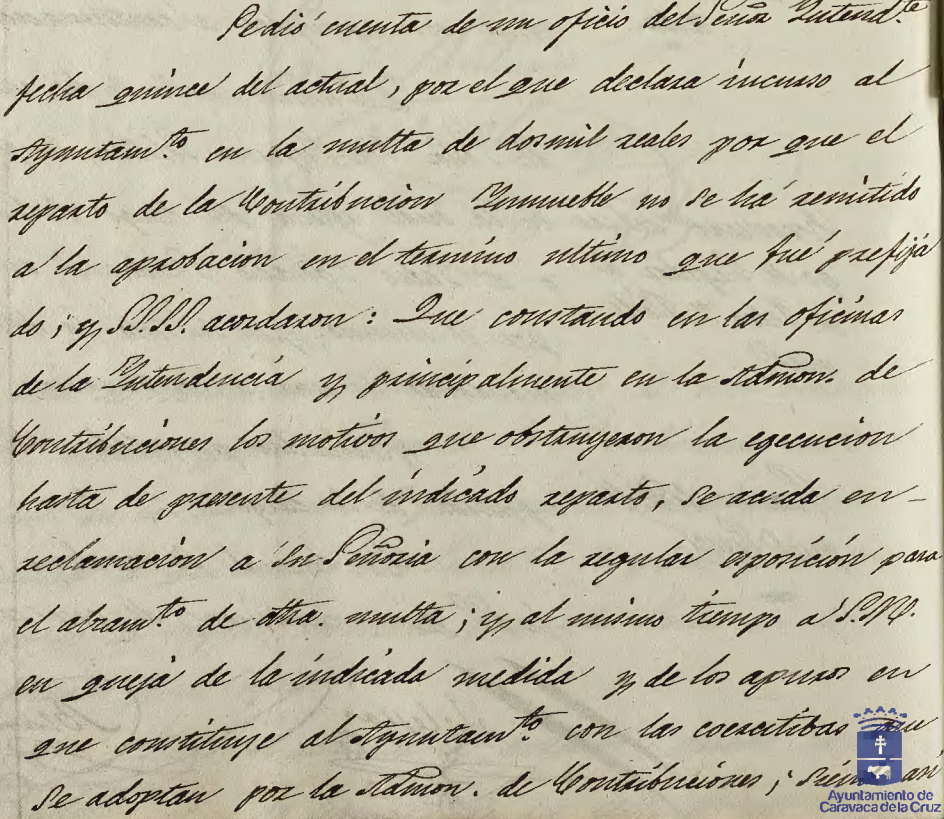 Se dió cuenta de un oficio del Señor Intend.te
fecha quince del actual, por el que declara incurso al
Ayuntam.to en la multa de dosmil reales por que el
reparto de la Contribucion Inmueble no se há remitido
a' la aprobacion en el termino ultimo que fué prefija
do; y S.S.S.S. acordaron: Que constando en las oficinas
de la Intendencia y principalmente en la Admon. de
Contribuciones los motivos que obstruyeron la egecucion
hasta de presente del indicado reparto, se acuda en-
reclamacion a' Su Señoria con la regular esposicion para
el alzam.to de dha. multa; y al mismo tiempo a' S.M.
en queja de la indicada medida y de los apuros en
que constituye al Ayuntam.to con las coercitibas que
se adoptan por la Admon. de Contribuciones; asi
Ayuntamiento de
Caravaca de la Cruz